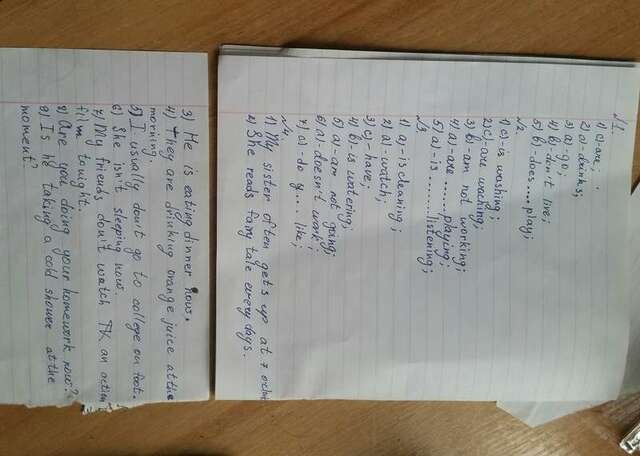 №1.
1) c)-are;
2) a)-drinks;
3) a)-go;
4) b)-don't live;
5) b)-does.....play;
№2
1) c)-is washing;
2) c)-are waching;
3) b)-am not working;
4) a)-are.......playing;
5) a)-is.......listening;
№3
1) a)-is cleaning;
2) a)-watch;
3) c)-have;
4) b)-is watering;
5) a)-am not going;
6) a)-doesn't work;
7) c)-do y... like;
№4.
1) My sister often gets up at 7
2) She reads fairy tale every days.
3) He is eating dinner now.
4) They are drinking orange juice at the
morning.
5) I usually don't go to college on foot.
6) She isn't sleeping now.
7) My friends don't watch an action
film tought.
8) Are you doing your homework now?
9) Is he taking a cold shower at the
moment?